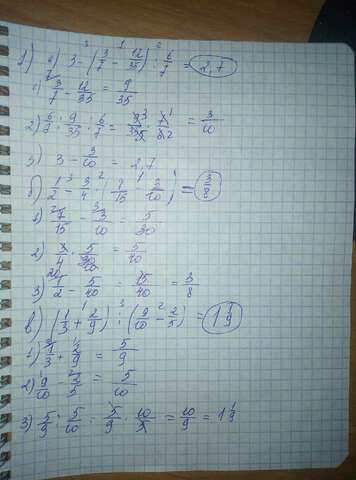 1) а) 3 - (3/7 - 12/35) : 6/7 = 2,7
1) 3/7 - 12/35 = 3/35
2) 3/35 : 6/7 = 3/35 · 7/6 = 3/10
3) 3 - 3/10 = 2,7
б) 1/2 - 3/4 · (7/15 - 3/10) = 3/8
1) 7/15 - 3/10 = 5/30
2) 3/4 · 5/30 = 5/40
3) 1/2 - 5/40 = 15/40 = 3/8
в) (1/3 + 2/9) : (9/10 - 2/5) = 1 1/9
1) 1/3 + 2/9 = 5/9
2) 9/10 - 2/5 = 5/10
3) 5/9 : 5/10 = 5/9 · 10/5 = 10/9 = 1 1/9